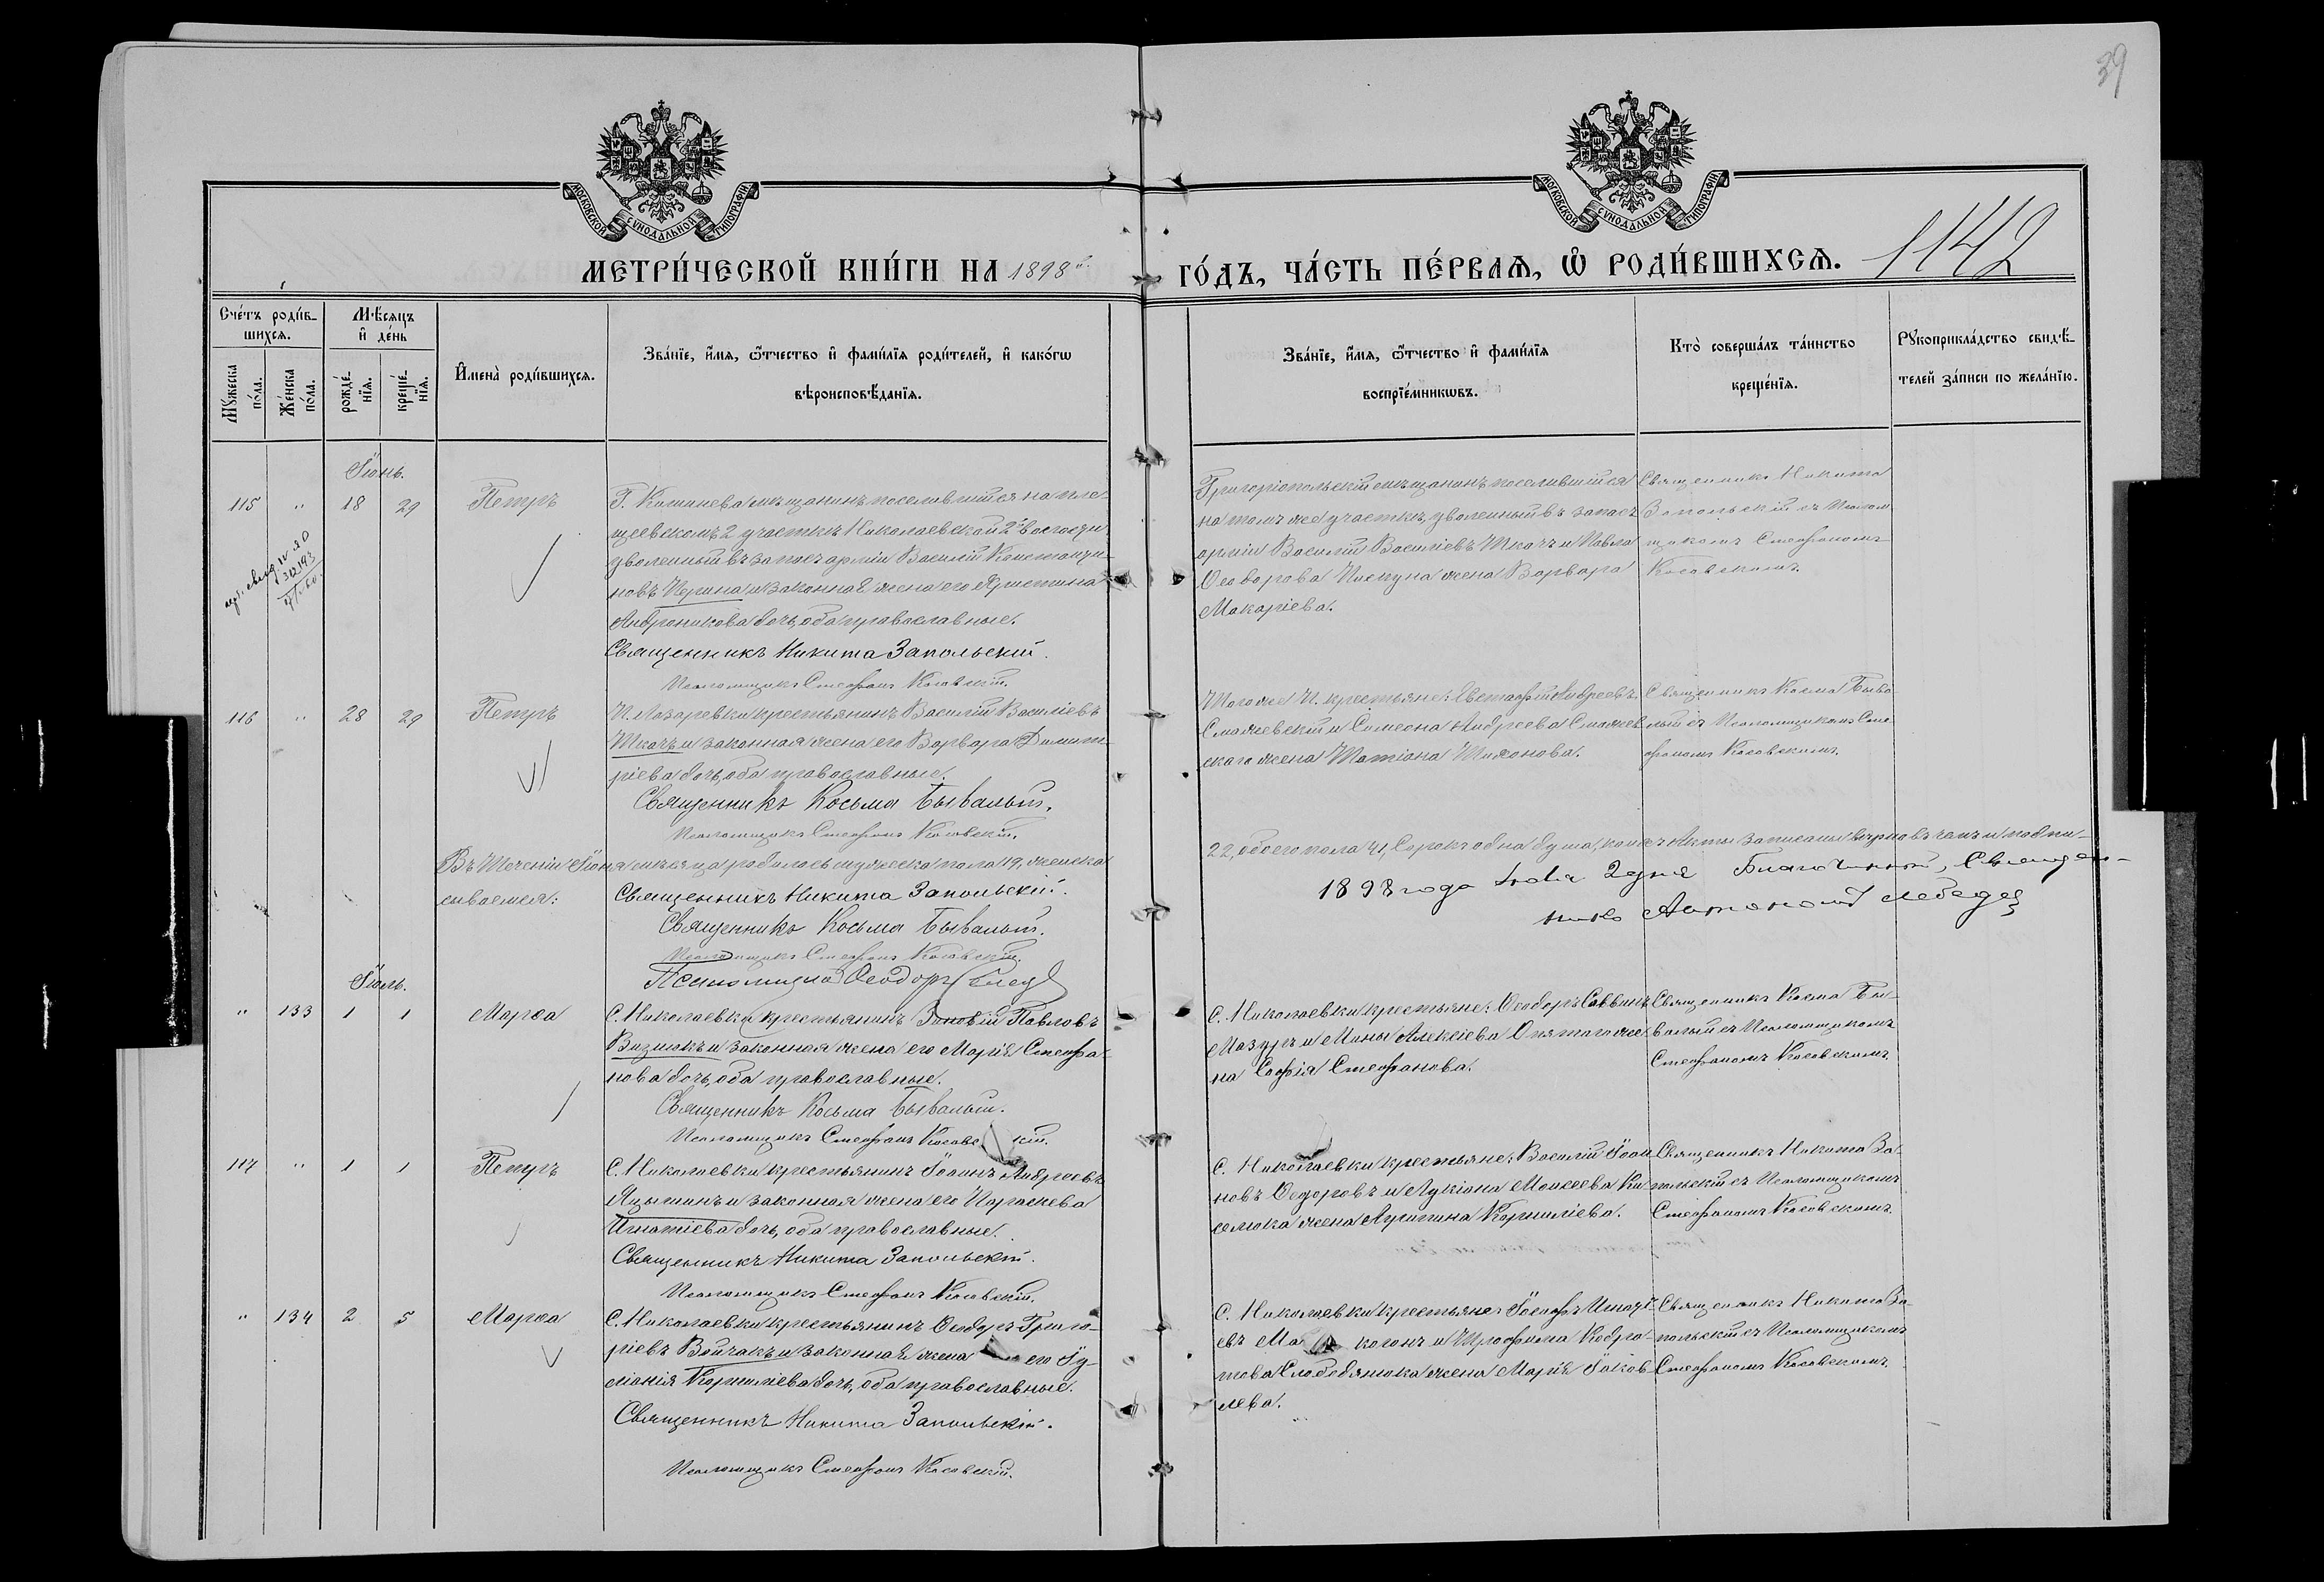 39
МОСКОВСКОЙ СѴНОДАЛЬНОЙ ТИПОГРАФІИ
МОСКОВСКОЙ СѴНОДАЛЬНОЙ ТИПОГРАФІИ
МЕТРИ́ЧЕСКОЙ КНИ́ГИ НА 1898 й.
ГО́ДЪ, ЧА́СТЬ ПЕ́РВАѦ, Ѽ РОДИ́ВШИХСѦ. 1142
Сче́тъ роди́в-
шихсѧ.
Мꙋжеска по́ла.
Же́нска по́ла.
Мѣсѧцъ
и҆ де́нь
рожде́-
нїѧ.
креще́-
нїѧ.
И҆мена̀ роди́вшихсѧ.
Зва́нїе, и҆́мѧ, ѻ҆́тчество и҆ фами́лїѧ роди́телей, и҆ како́гѡ
вѣроисповѣ́данїѧ.
Зва́нїе, и҆́мѧ, ѻ҆́тчество и҆ фами́лїѧ
воспрїе́мникѡвъ.
Кто̀ соверша́лъ та́инство
креще́нїѧ.
Рꙋкоприкла́дство свидѣ́-
телей за́писи по жела́нїю.
Іюнь.
115 " 18 29 Петръ
Г. Кишинева мѣщанинъ поселившійся на пле-
щеевскомъ 2 участкѣ Николаевской 2й волости
уволенный въ запасъ арміи Василій Константи-
новъ Перина и законная жена его Іустина
Андроникова дочь, оба православные.
Священникъ Никита Запольскій.
Псаломщикъ Стефанъ Косовскій.
Григоріопольскій мѣщанинъ поселившійся
на томъ же участкѣ, уволенный въ запасъ
арміи Василій Василіевъ Ткачъ и Павла
Ѳеодорова Пискуна жена Варвара
Макаріева.
Священникъ Никита
Запольскій съ Псалом-
щикомъ Стефаномъ
Косовскимъ.
116 " 28 29 Петръ
П. Лазаревки крестьянинъ Василій Василіевъ
Ткачъ и законная жена его Варвара Димит-
ріева дочь, оба православные.
Священникъ Косьма Бывалый.
Псаломщикъ Стефанъ Косовскій.
Того же П. крестьяне: Евстафій Андреевъ
Смажевскій и Симеона Андреева Смажев-
скаго жена Татіана Тихонова.
Священникъ Косма Быва-
лый съ Псаломщикомъ Сте-
фаномъ Косовскимъ.
Въ теченіи Іюня мѣсяца родилось мужеска пола 19, женска
22, обоего пола 41, Сорокъ одна душа, коихъ Акты записаны вѣрно въ чемъ и подпи-
сываемся:
Священникъ Никита Запольскій.
Священникъ Косьма Бывалый.
Псаломщикъ Стефанъ Косовскій.
Псаломщикъ Ѳеодоръ
1898 года Іюля 2 дня Благочинный, Священ-
никъ Лебедев
Іюль.
" 133 1 1 Марѳа
С. Николаевки крестьянинъ Зиновій Павловъ
Визнюкъ и законная жена его Марія Стефа-
нова дочь, оба православные.
Священникъ Косьма Бывалый.
Псаломщикъ Стефанъ Косовскій.
С. Николаевки крестьяне: Ѳеодоръ Саввинъ
Мазуръ и Мины Алексіева Опятаго же-
на Софія Стефанова.
Священникъ Косма Бы-
валый съ Псаломщикомъ
Стефаномъ Косовскимъ.
117 " 1 1 Петръ
С. Николаевки крестьянинъ Іоаннъ Андреевъ
Яцышинъ и законная жена его Параскева
Игнатіева дочь, оба православные.
Священникъ Никита Запольскій.
Псаломщикъ Стефанъ Косовскій.
С. Николаевки крестьяне: Василій Іоан-
новъ Ѳедоровъ и Лукіана Моисеева Ки-
селюка жена Агрипина Корниліева.
Священникъ Никита За-
польскій съ Псаломщикомъ
Стефаномъ Косовскимъ.
" 134 2 5 Марѳа
С. Николаевки крестьянинъ Ѳеодоръ Григо-
ріевъ Войчакъ и законная жена его Іу-
ліанія Корниліева дочь, оба православные.
Священникъ Никита Запольскій.
Псаломщикъ Стефанъ Косовскій.
С. Николаевки крестьяне: Іосифъ Игнаті-
евъ и Трофима Кодра-
това Слободянюка жена Марія Іаков-
лева.
Священникъ Никита За-
польскій съ Псаломщикомъ
Стефаномъ Косовскимъ.